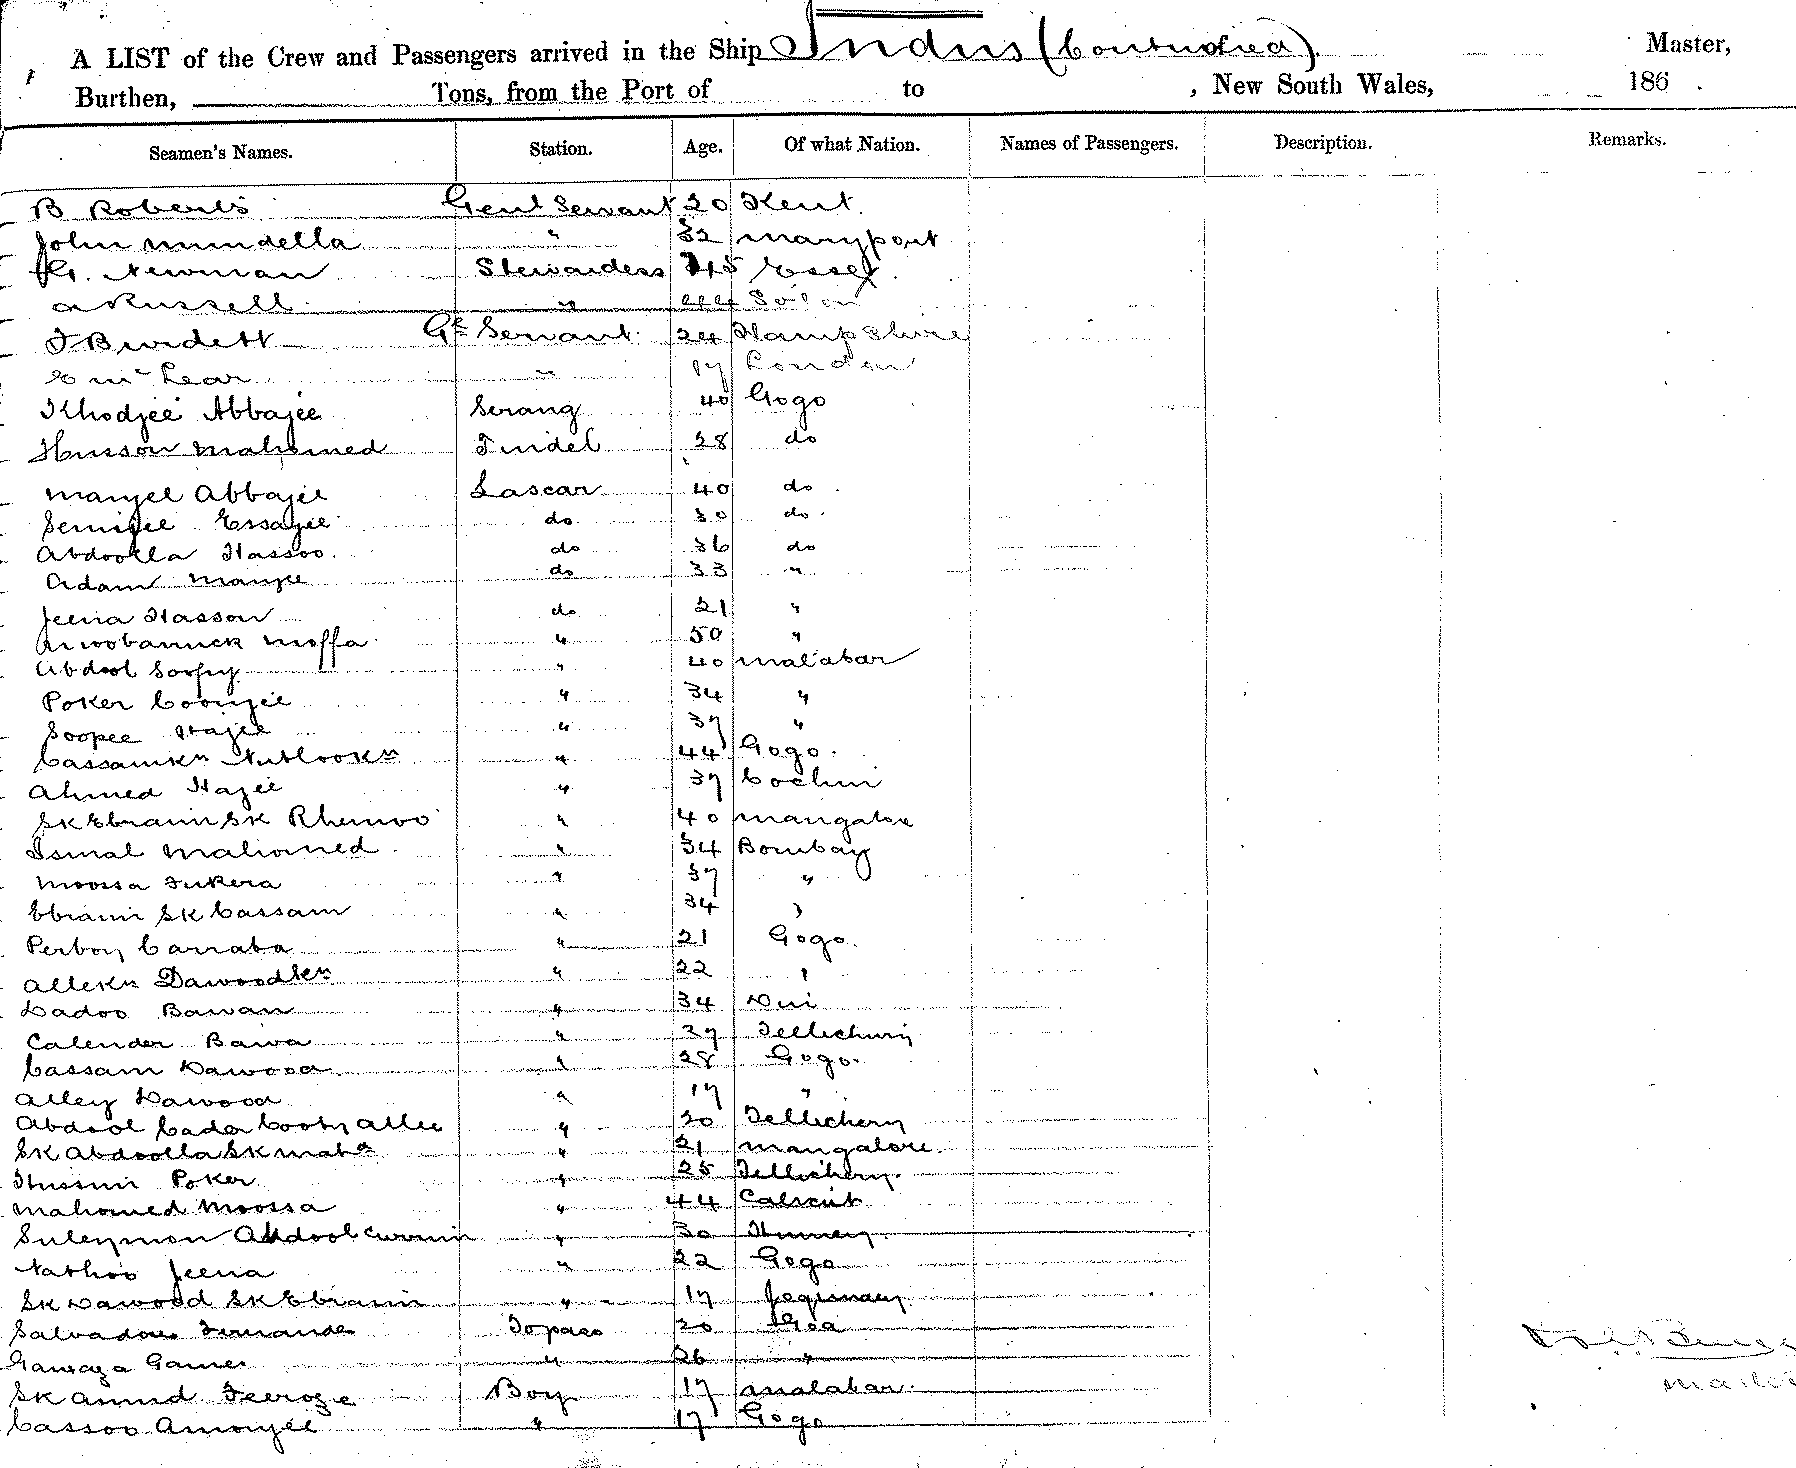 A LIST of the Crew and Passengers arrived in the Ship Indus (Continued) Master,
Burthen, Tons, from the Port of to , New South Wales, 186 .
Seamen's Names. Station. Age. Of what Nation. Names of Passengers. Description. Remarks.
B Roberts Genl Servant 20 Kent
John Mundella " 32 Maryport
G. Newman Stewardess 45 Essex
A Russell " 44
J Burdett Gl Servant 24 Hampshire
E McLear " 17 London
Khodjee Abbajee Serang 40 Gogo
Husson Mahomed Tindel 28 do
Manjel Abbajee Lascar 40 do
Essajee do 30 do
Abdoolla Hassoo do 36 do
Adam Manjee do 33 "
Jeena Hasson do 21 "
Moffa " 50 "
Abdool " 40 Malabar
Poker Coonjee " 34 "
Soopee Hajee " 37 "
" 44 Gogo
Ahmed Hajee " 37 Cochin
Sk Ebraim Sk Rhemoo " 40 Mangalore
Ismal Mahomed " 34 Bombay
Moossa Fukera " 37 "
Ebraim Sk Cassam " 34 "
Carraba " 21 Gogo
Allekn Dawoodkn " 22 "
Dadoo Bawan " 34 Diu
Calender Bawa " 37 Tellichery
Cassam Dawood " 28 Gogo
Alley Dawood " 17 "
Abdool Cader Cooty Allee " 20 Tellichery
Sk Abdoolla Sk Mahd " 21 Mangalore
Hussein Poker " 25 Tellichery
Mahomed Moossa " 44 Calicut
Suleymon Abdool Curmin " 30
Nathoo Jeena " 22 Gogo
Sk Dawood Sk Ebraim " 17
Salvadore Fernandes Topass 20 Goa
" 26 "
Sk Amed Feeroze Boy 17 Malabar
Cassoo Amonjee " 17 Gogo